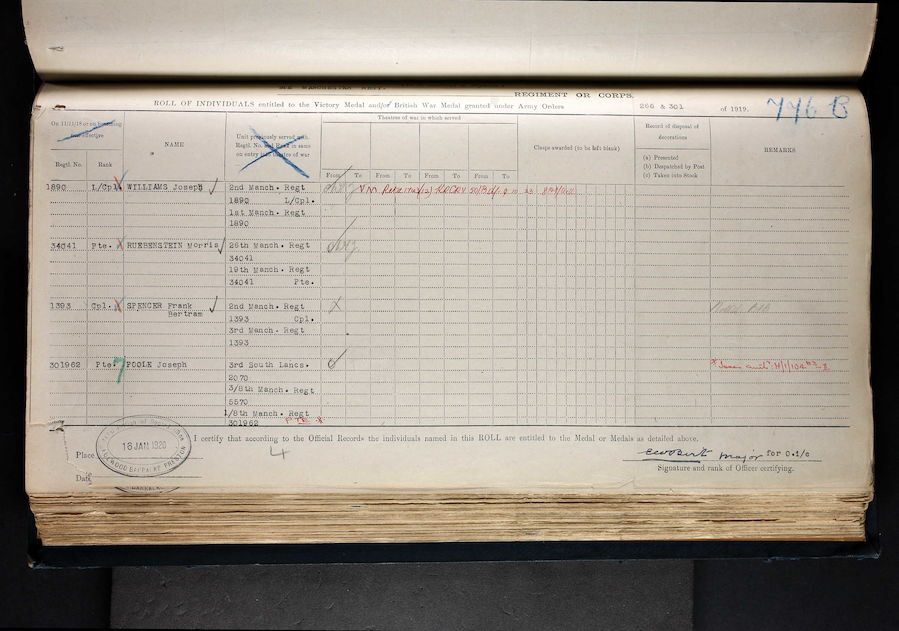 THE MANCHESTER REGT.
REGIMENT OR CORPS.
776 B
ROLL OF INDIVIDUALS entitled to the Victory Medal and/or British War Medal granted under Army Orders 266 & 301 of 1919.
On 11/11/18 or on becoming non-effective
Regtl. No.
Rank
NAME
Unit previously served with. Regtl. No. and Rank in same on entry into theatre of war
Theatres of war in which served
From To From To From To From To
Clasps awarded (to be left blank)
Record of disposal of decorations
(a) Presented
(b) Despatched by Post
(c) Taken into Stock
REMARKS
1890 L/Cpl. WILLIAMS Joseph 2nd Manch. Regt
1890 L/Cpl.
1st Manch. Regt
1890
34041 Pte. RUEBENSTEIN Morris 26th Manch. Regt
34041
19th Manch. Regt
34041 Pte.
1393 Cpl. SPENCER Frank 2nd Manch. Regt
Bertram 1393 Cpl.
3rd Manch. Regt
1393
301962 Pte. POOLE Joseph 3rd South Lancs.
2070
3/8th Manch. Regt
5570
1/8th Manch. Regt
301962 PTE.
I certify that according to the Official Records the individuals named in this ROLL are entitled to the Medal or Medals as detailed above.
Place
18 JAN 1920
FULWOOD BARRACKS PRESTON
4
Major for O.i/c
Date
Signature and rank of Officer certifying.